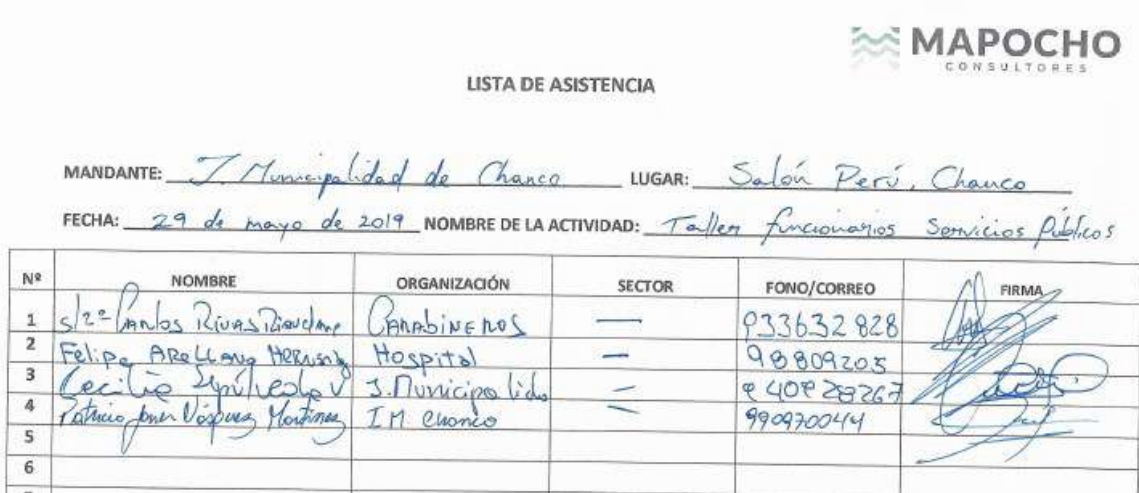 MAPOCHO
CONSULTORES
LISTA DE ASISTENCIA
MANDANTE: I. Municipalidad de Chanco LUGAR: Salón Perú, Chanco
FECHA: 29 de mayo de 2019 NOMBRE DE LA ACTIVIDAD: Taller funcionarios Servicios Públicos
Nº NOMBRE ORGANIZACIÓN SECTOR FONO/CORREO FIRMA
1 S/2º Carlos Rivas Riquelme CARABINEROS — 933632828
2 Felipe Arellano Hospital — 98809205
3 Cecilia Sepúlveda V I. Municipalidad — 940928267
4 Patricio Vásquez Martínez I M Chanco — 990970044
5
6